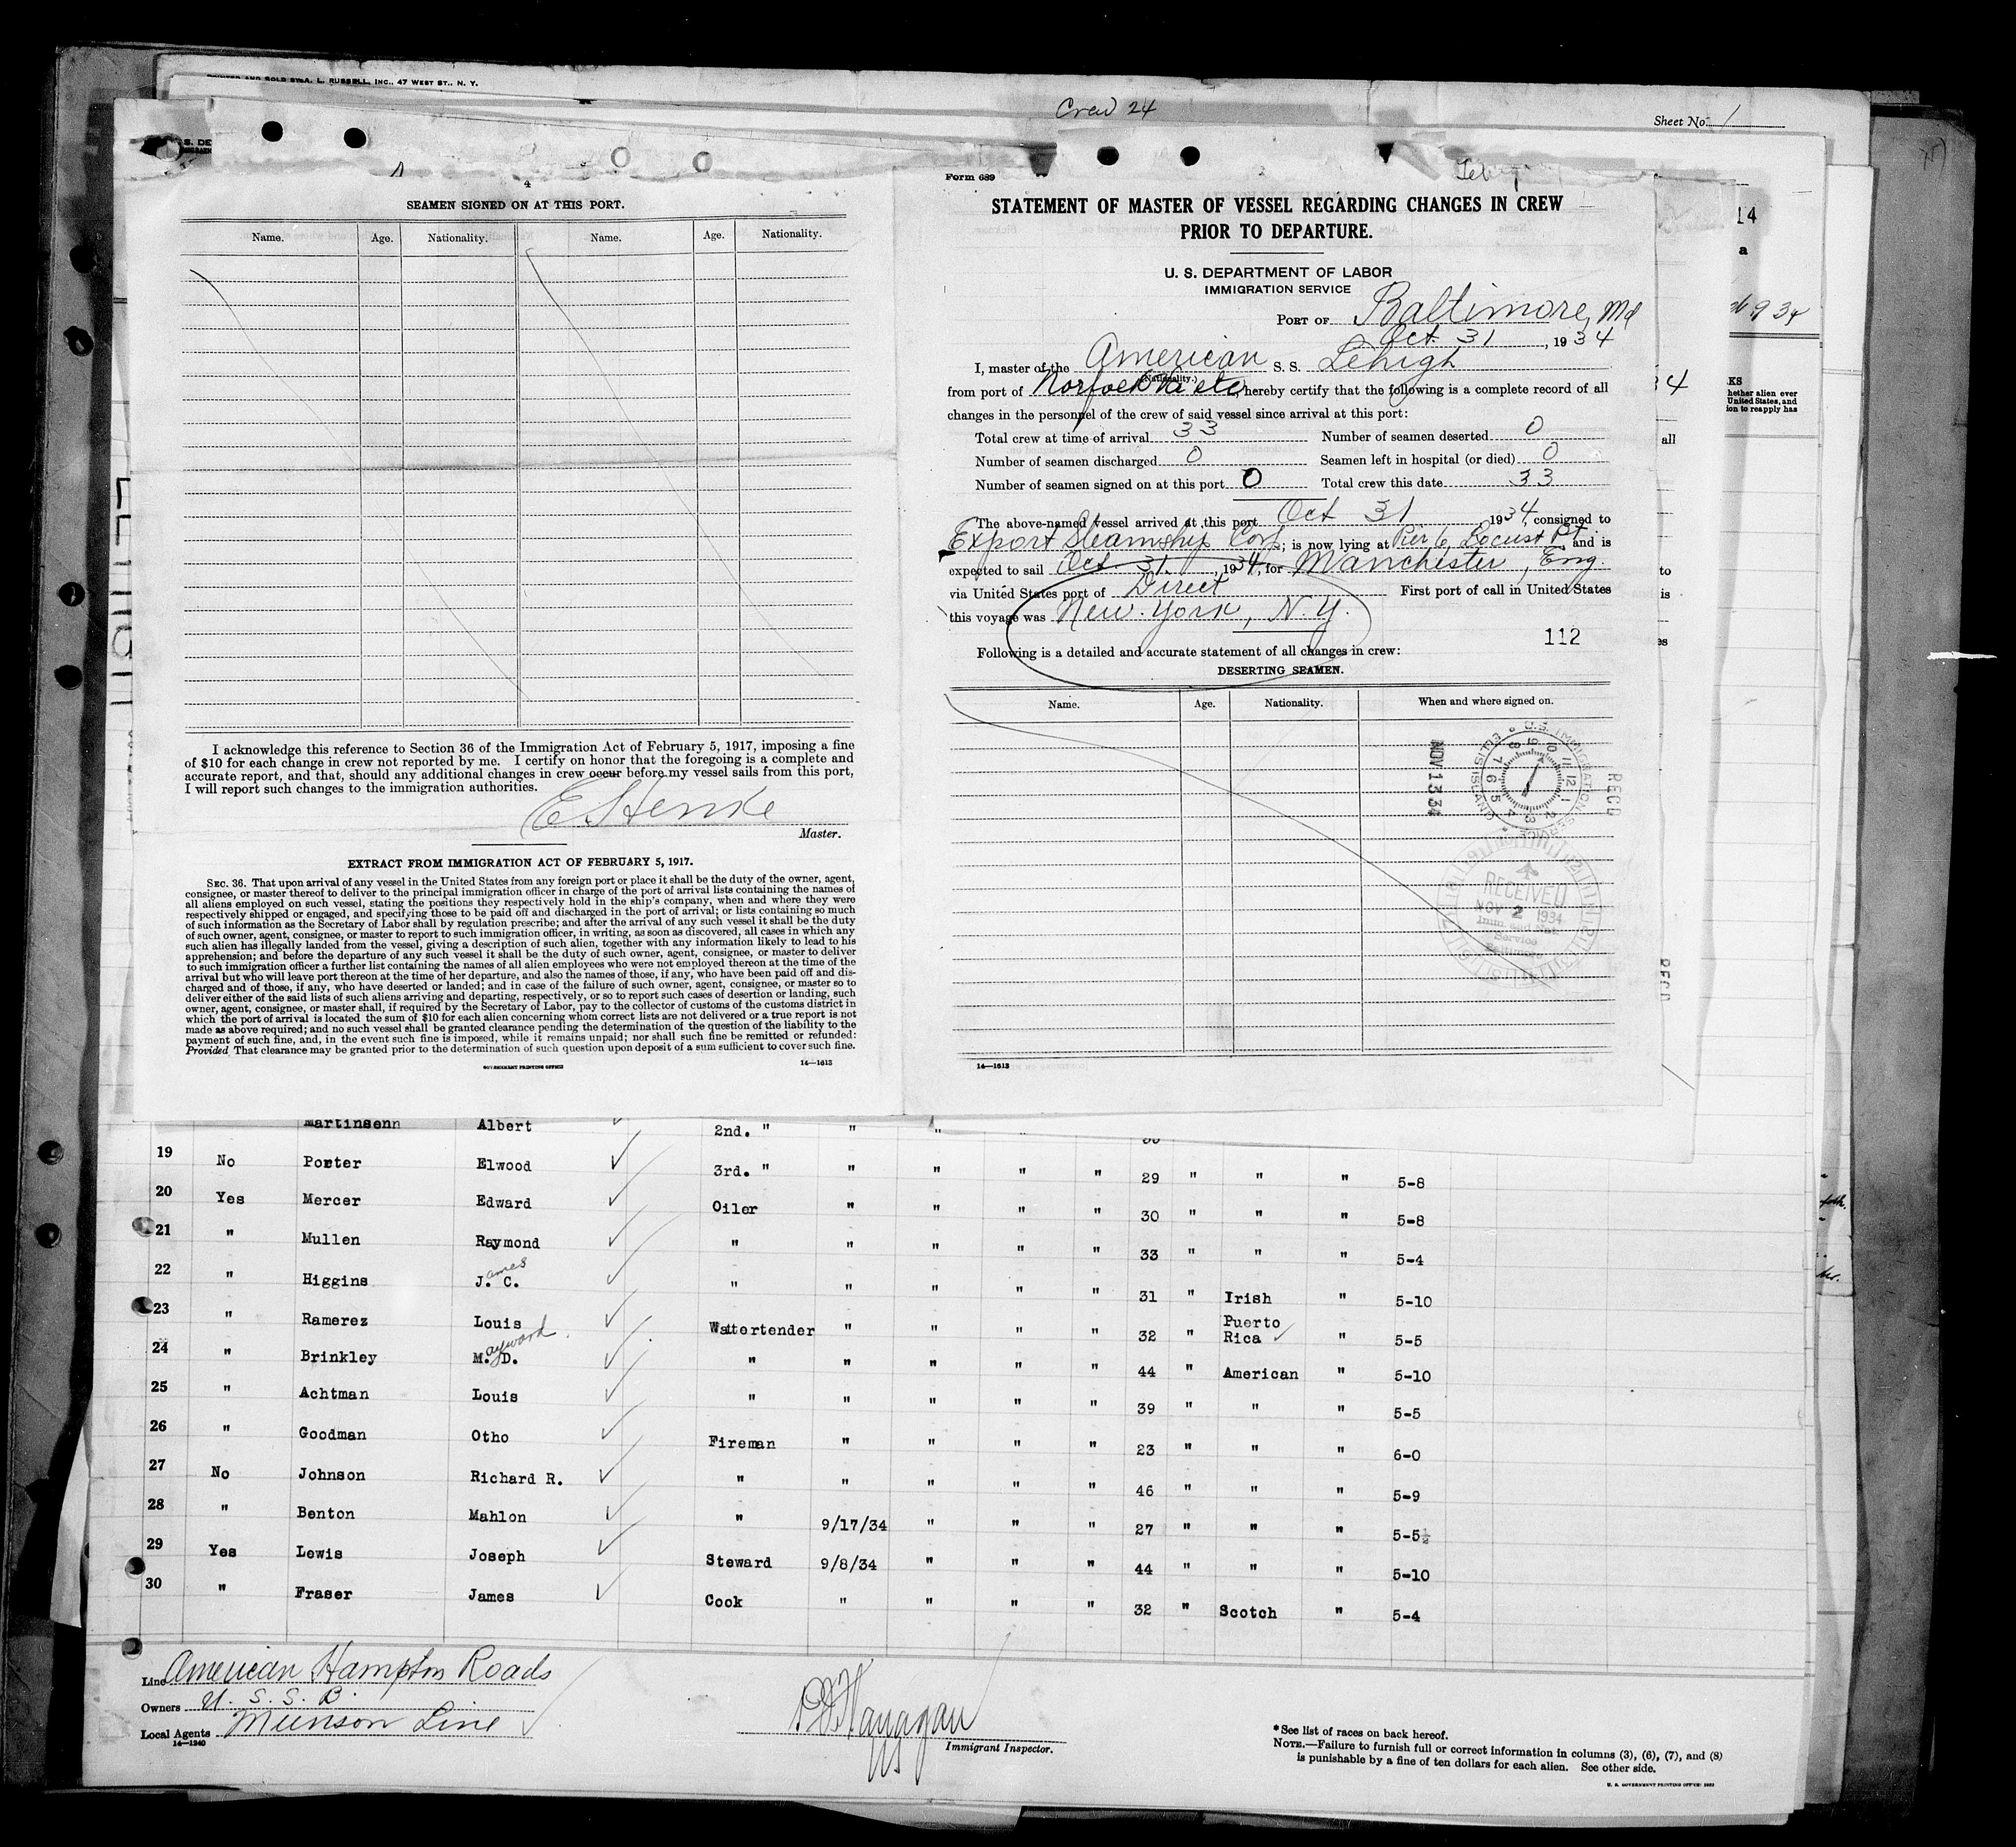 PRINTED AND SOLD BY A. L. RUSSELL, INC., 47 WEST ST., N. Y.
Crew 24
Sheet No. 1
4
SEAMEN SIGNED ON AT THIS PORT.
Name. Age. Nationality. Name. Age. Nationality.
I acknowledge this reference to Section 36 of the Immigration Act of February 5, 1917, imposing a fine
of $10 for each change in crew not reported by me. I certify on honor that the foregoing is a complete and
accurate report, and that, should any additional changes in crew occur before my vessel sails from this port,
I will report such changes to the immigration authorities.
E Henke
Master.
EXTRACT FROM IMMIGRATION ACT OF FEBRUARY 5, 1917.
SEC. 36. That upon arrival of any vessel in the United States from any foreign port or place it shall be the duty of the owner, agent,
consignee, or master thereof to deliver to the principal immigration officer in charge of the port of arrival lists containing the names of
all aliens employed on such vessel, stating the positions they respectively hold in the ship's company, when and where they were
respectively shipped or engaged, and specifying those to be paid off and discharged in the port of arrival; or lists containing so much
of such information as the Secretary of Labor shall by regulation prescribe; and after the arrival of any such vessel it shall be the duty
of such owner, agent, consignee, or master to report to such immigration officer, in writing, as soon as discovered, all cases in which any
such alien has illegally landed from the vessel, giving a description of such alien, together with any information likely to lead to his
apprehension; and before the departure of any such vessel it shall be the duty of such owner, agent, consignee, or master to deliver
to such immigration officer a further list containing the names of all alien employees who were not employed thereon at the time of the
arrival but who will leave port thereon at the time of her departure, and also the names of those, if any, who have been paid off and dis-
charged and of those, if any, who have deserted or landed; and in case of the failure of such owner, agent, consignee, or master so to
deliver either of the said lists of such aliens arriving and departing, respectively, or so to report such cases of desertion or landing, such
owner, agent, consignee, or master shall, if required by the Secretary of Labor, pay to the collector of customs of the customs district in
which the port of arrival is located the sum of $10 for each alien concerning whom correct lists are not delivered or a true report is not
made as above required; and no such vessel shall be granted clearance pending the determination of the question of the liability to the
payment of such fine, and, in the event such fine is imposed, while it remains unpaid; nor shall such fine be remitted or refunded:
Provided, That clearance may be granted prior to the determination of such question upon deposit of a sum sufficient to cover such fine.
GOVERNMENT PRINTING OFFICE 14—1613
Form 689
STATEMENT OF MASTER OF VESSEL REGARDING CHANGES IN CREW
PRIOR TO DEPARTURE.
U. S. DEPARTMENT OF LABOR
IMMIGRATION SERVICE
PORT OF Baltimore, Md
Oct. 31, 1934
I, master of the American S. S. Lehigh
(Nationality.)
from port of Norfolk Va etc, hereby certify that the following is a complete record of all
changes in the personnel of the crew of said vessel since arrival at this port:
Total crew at time of arrival 33 Number of seamen deserted 0
Number of seamen discharged 0 Seamen left in hospital (or died) 0
Number of seamen signed on at this port 0 Total crew this date 33
The above-named vessel arrived at this port Oct 31, 1934, consigned to
Export Steamship Corp; is now lying at Pier 6, Locust Pt and is
expected to sail Oct. 31, 1934, for Manchester, Eng.
via United States port of Direct First port of call in United States
this voyage was New York, N. Y.
112
Following is a detailed and accurate statement of all changes in crew:
DESERTING SEAMEN.
Name. Age. Nationality. When and where signed on.
U.S. IMMIGRATION SERVICE ELLIS ISLAND
NOV 1 3 34
RECD
RECEIVED
NOV 2 1934
Service
Baltimore
14—1613
14
a
KS
hether alien ever
United States, and
ion to reapply has
34
all
to
is
es
Martinsenn Albert 2nd. " " "
19 No Porter Elwood 3rd. " " " " " 29 " " " 5-8
20 Yes Mercer Edward Oiler " " " " 30 " " " 5-8
21 " Mullen Raymond " " " " " 33 " " " 5-4
22 " Higgins J.ames C. " " " " " 31 " Irish " 5-10
23 " Ramerez Louis Wattertender " " " " 32 " Puerto Rica " 5-5
24 " Brinkley M.ayward D. " " " " " 44 " American " 5-10
25 " Achtman Louis " " " " " 39 " " " 5-5
26 " Goodman Otho Fireman " " " " 23 " " " 6-0
27 No Johnson Richard R. " " " " " 46 " " " 5-9
28 " Benton Mahlon " 9/17/34 " " " 27 " " " 5-5½
29 Yes Lewis Joseph Steward 9/8/34 " " " 44 " " " 5-10
30 " Fraser James Cook " " " " 32 " Scotch " 5-4
Line American Hampton Roads
Owners U. S. S. B.
Local Agents Munson Line
14—1240
Flanagan
Immigrant Inspector.
*See list of races on back hereof.
NOTE.—Failure to furnish full or correct information in columns (3), (6), (7), and (8)
is punishable by a fine of ten dollars for each alien. See other side.
U. S. GOVERNMENT PRINTING OFFICE: 1933